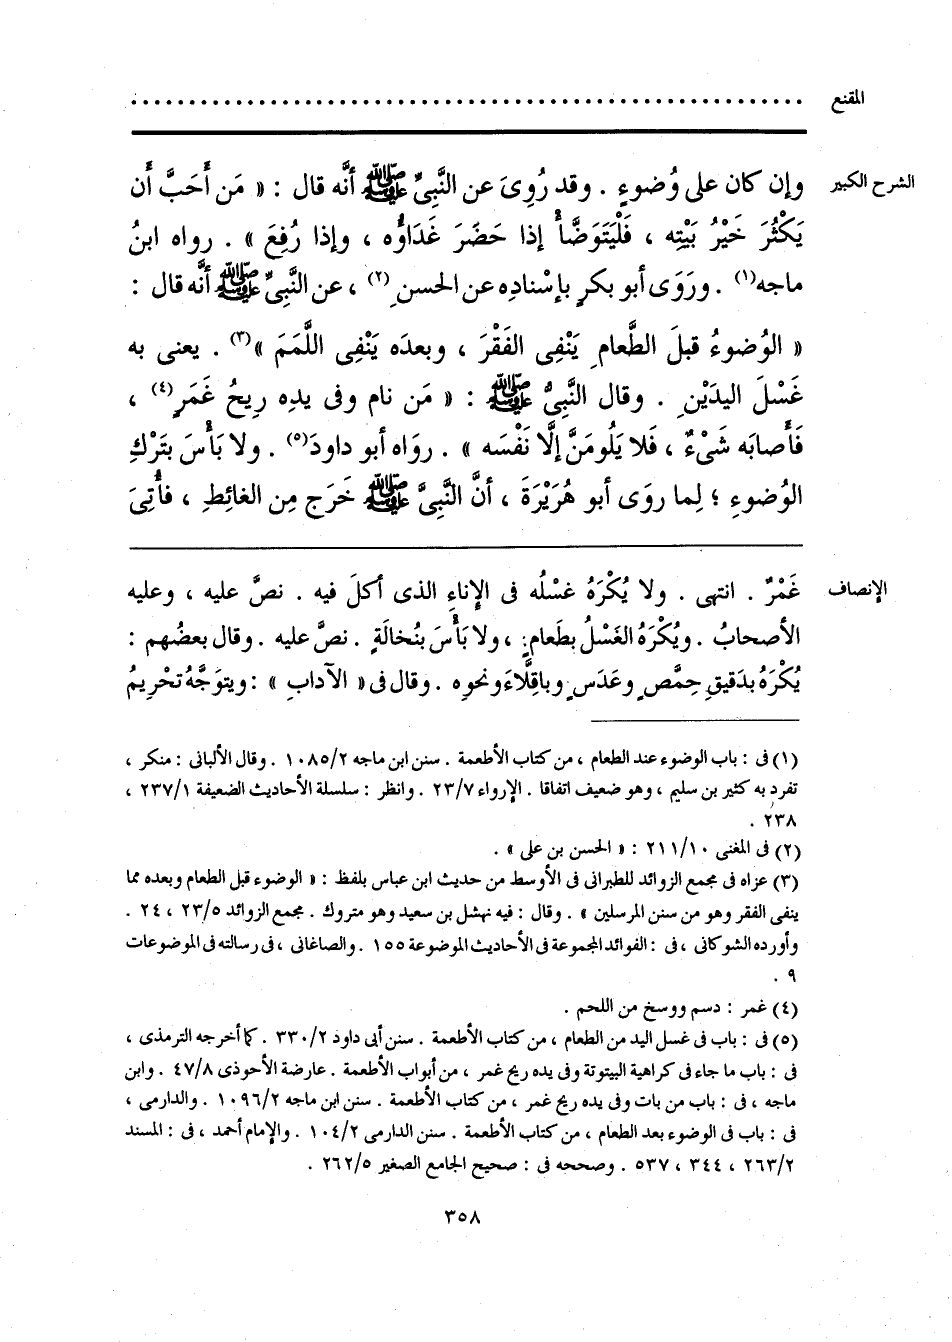 المقنع ........................................................
الشرح الكبير وإن كان على وُضوءٍ . وقد رُوِىَ عن النَّبِىِّ ﷺ أنَّه قال : « مَن أَحَبَّ أن
يَكْثُرَ خَيْرُ بَيْتِه ، فَلْيَتَوَضَّأْ إذا حَضَرَ غَدَاؤُه ، وإذا رُفِعَ » . رواه ابنُ
ماجه(١) . ورَوَى أبو بكرٍ بإسْنادِه عن الحسنِ(٢) ، عن النَّبِىِّ ﷺ أنَّه قال :
« الوُضوءُ قبلَ الطَّعامِ يَنْفِى الفَقْرَ ، وبعدَه يَنْفِى اللَّمَمَ »(٣) . يعنى به
غَسْلَ اليدَيْنِ . وقال النَّبِىُّ ﷺ : « مَن نام وفى يدِه رِيحُ غَمَرٍ(٤) ،
فَأَصابَه شَىْءٌ ، فَلا يَلُومَنَّ إلَّا نَفْسَه » . روَاه أبو داودَ(٥) . ولا بَأْسَ بتَرْكِ
الوُضوءِ ؛ لِما روَى أبو هُرَيْرَةَ ، أنَّ النَّبِىَّ ﷺ خَرَج مِن الغائطِ ، فأُتِىَ
الإنصاف غَمْرٌ . انتهى . ولا يُكْرَهُ غسْلُه فى الإِناءِ الذى أكلَ فيه . نصَّ عليه ، وعليه
الأصحابُ . ويُكْرَهُ الغَسْلُ بطَعامٍ ، ولا بَأْسَ بنُخالَةٍ . نصَّ عليه . وقال بعضُهم :
يُكْرَهُ بدَقيقِ حِمَّصٍ وعَدَسٍ وباقِلَّاءَ ونحوِه . وقال فى « الآدابِ » : ويتوَجَّهُ تحْريمُ
(١) فى : باب الوضوء عند الطعام ، من كتاب الأطعمة . سنن ابن ماجه ١٠٨٥/٢ . وقال الألبانى : منكر ،
تفرد به كثير بن سليم ، وهو ضعيف اتفاقا . الإرواء ٢٣/٧ . وانظر : سلسلة الأحاديث الضعيفة ٢٣٧/١ ،
٢٣٨ .
(٢) فى المغنى ٢١١/١٠ : « الحسن بن على » .
(٣) عزاه فى مجمع الزوائد للطبرانى فى الأوسط من حديث ابن عباس بلفظ : « الوضوء قبل الطعام وبعده مما
ينفى الفقر وهو من سنن المرسلين » . وقال : فيه نهشل بن سعيد وهو متروك . مجمع الزوائد ٢٣/٥ ، ٢٤ .
وأورده الشوكانى ، فى : الفوائد المجموعة فى الأحاديث الموضوعة ١٥٥ . والصاغانى ، فى رسالته فى الموضوعات
٩ .
(٤) غمر : دسم ووسخ من اللحم .
(٥) فى : باب فى غسل اليد من الطعام ، من كتاب الأطعمة . سنن أبى داود ٣٣٠/٢ . كما أخرجه الترمذى ،
فى : باب ما جاء فى كراهية البيتوتة وفى يده ريح غمر ، من أبواب الأطعمة . عارضة الأحوذى ٤٧/٨ . وابن
ماجه ، فى : باب من بات وفى يده ريح غمر ، من كتاب الأطعمة . سنن ابن ماجه ١٠٩٦/٢ . والدارمى ،
فى : باب فى الوضوء بعد الطعام ، من كتاب الأطعمة . سنن الدارمى ١٠٤/٢ . والإمام أحمد ، فى : المسند
٢٦٣/٢ ، ٣٤٤ ، ٥٣٧ . وصححه فى : صحيح الجامع الصغير ٢٦٢/٥ .
٣٥٨